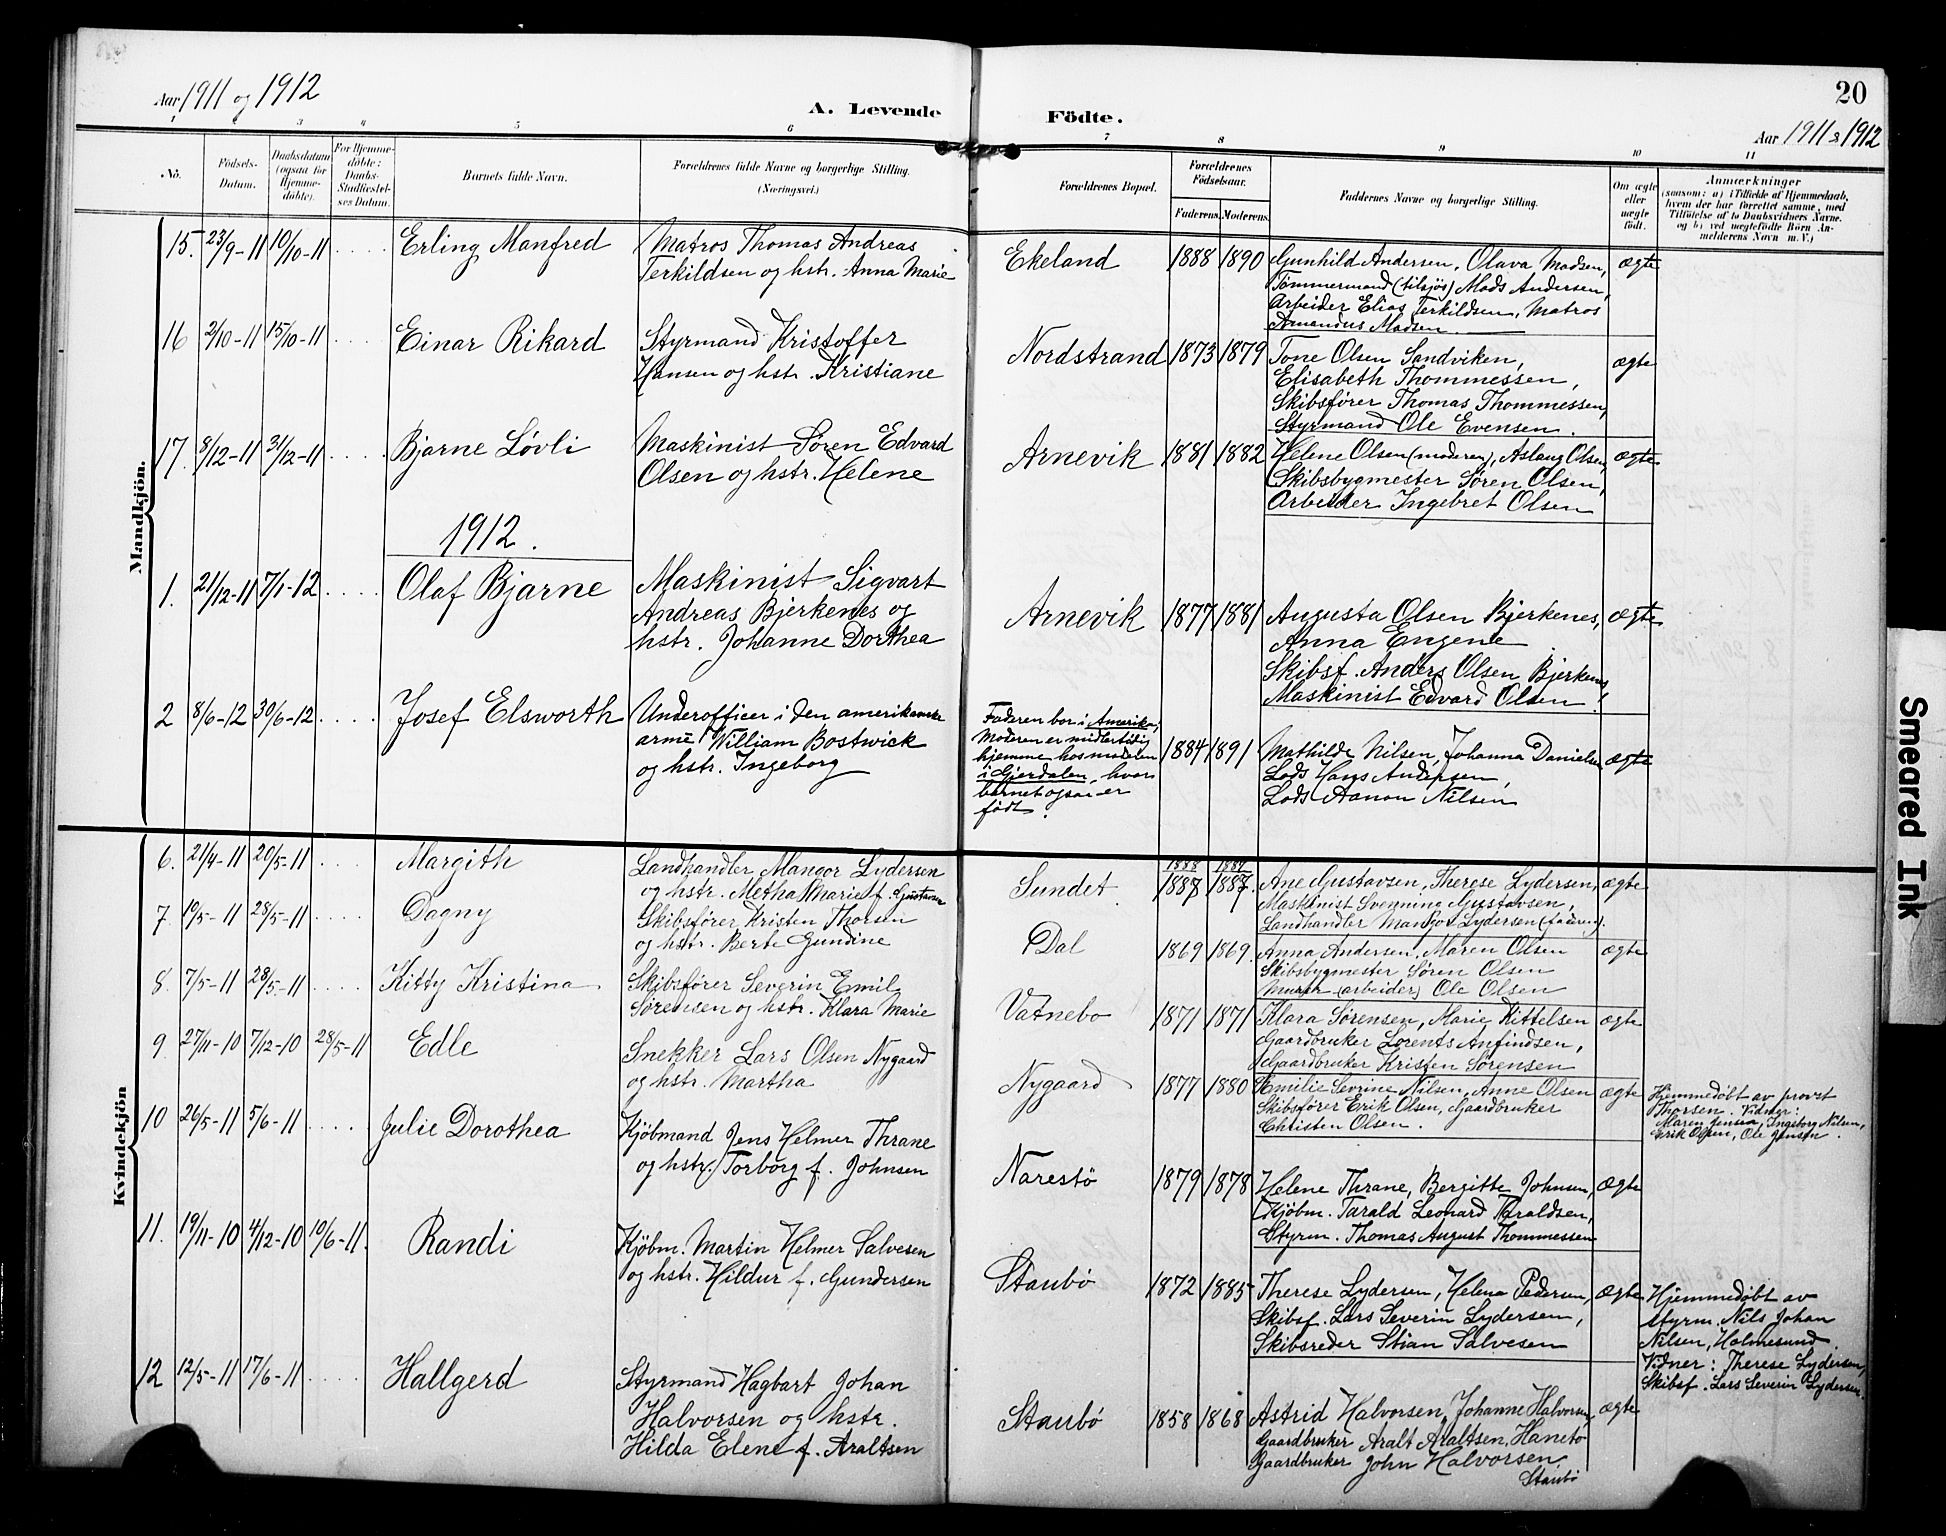 Aar 1911 og 1912
A. Levende Födte.
20
Aar 1911 & 1912
1 3 4 5 6 7 8 9 10 11
No.
Födsels-Datum.
Daabsdatum (ogsaa for Hjemme-döbte).
For Hjemme-döbte: Daabs-Stadfæstel-ses Datum.
Barnets fulde Navn.
Forældrenes fulde Navne og borgerlige Stilling.
(Næringsvei.)
Forældrenes Bopæl.
Forældrenes Födselsaar.
Faderens. Moderens.
Faddernes Navne og borgerlige Stilling.
Om ægte eller uægte födt.
Anmærkninger
(saasom: a) i Tilfælde af Hjemmedaab,
hvem der har forrettet samme, med
Tilföielse af to Daabsvidners Navne.
og b) ved uægtefödte Börn An-
melderens Navn m. V.)
Mandkjön.
15. 23/9-11 10/10-11 Erling Manfred
Matros Thomas Andreas
Terkildsen og hstr. Anna Marie
Ekeland 1888 1890
Gunhild Andersen, Olava Madsen,
Tømmermand (tilsjøs) Mads Andersen,
Arbeider Elias Terkildsen, Matros
Amandus Madsen
ægte
16 2/10-11 15/10-11 Einar Rikard
Styrmand Kristoffer
Hansen og hstr. Kristiane
Nordstrand 1873 1879
Tone Olsen Sandviken,
Elisabeth Thommessen,
Skibsfører Thomas Thommessen,
Styrmand Ole Evensen.
ægte
17. 8/12-11 31/12-11 Bjarne Løvli
Maskinist Søren Edvard
Olsen og hstr. Helene
Arnevik 1881 1882
Helene Olsen (moderen), Aslaug Olsen,
Skibsbygmester Søren Olsen,
Arbeider Ingebret Olsen
ægte
1912.
1. 21/12-11 7/1-12 Olaf Bjarne
Maskinist Sigvart
Andreas Bjerkenes og
hstr. Johanne Dorthea
Arnevik 1877 1881
Augusta Olsen Bjerkenes,
Anna Engene
Skibsf. Anders Olsen Bjerkenes,
Maskinist Edvard Olsen.
ægte
2 8/6-12 30/6-12 Josef Elsworth
Underofficer i den amerikanske
armé William Bostwick
og hstr. Ingeborg
Faderen bor i Amerika,
Moderen er midlertidig
hjemme hos moderen
i Gjerdalen, hvor
barnet ogsaa er
født.
1884 1891
Mathilde Nilsen, Johanna Danielsen
Lods Hans Andersen,
Lods Aanon Nilsen
ægte
Kvindekjön
6. 21/4-11 20/5-11 Margith
Landhandler Mangor Lydersen
og hstr. Metha Marie f. Gustavsen
Sundet.
1888 1887
1887 1887
Ane Gustavsen, Therese Lydersen,
Maskinist Svenning Gustavsen,
Landhandler Mangor Lydersen (faderen).
ægte
7. 19/5-11 28/5-11 Dagny
Skibsfører Kristen Thorsen
og hstr. Berte Gundine
Dal 1869 1869.
Anna Andersen, Maren Olsen
Skibsbygmester Søren Olsen
Murer (arbeider) Ole Olsen
ægte
8. 7/5-11 28/5-11 Kitty Kristina
Skibsfører Severin Emil
Sørensen og hstr. Klara Marie
Vatnebo 1871 1871
Klara Sørensen, Marie Kittelsen
Gaardbruker Lorents Anfindsen,
Gaardbruker Kristen Sørensen
ægte
9 27/11-10 7/12-10 28/5-11 Edle
Snekker Lars Olsen Nygaard
og hstr. Martha
Nygaard 1877 1880
Emilie Sevrine Nilsen, Anne Olsen
Skibsfører Erik Olsen, Gaardbruker
Christen Olsen.
ægte
Hjemmedøbt av provst
Thorsen. Vidner:
Maren Jensen, Ingeborg Nilsen,
Erik Olsen, Ole Jensen.
10 26/5-11 5/6-11 Julie Dorothea
Kjøbmand Jens Helmer Thrane
og hstr. Torborg f. Johnsen
Narestø 1879 1878
Helene Thrane, Bergitte Johnsen,
Kjøbm. Tarald Leonard Taraldsen,
Styrm. Thomas August Thommessen
ægte
11. 19/11-10 4/12-10 10/6-11. Randi
Kjøbm. Martin Helmer Salvesen
og hstr. Hildur f. Gundersen
Staubø 1872 1885
Therese Lydersen, Helena Pedersen,
Skibsf. Lars Severin Lydersen,
Skibsreder Stian Salvesen
ægte
Hjemmedøbt av
styrm. Nils Johan
Nilsen, Holmesund.
Vidner: Therese Lydersen,
Skibsf. Lars Severin Lydersen.
12 12/5-11 17/6-11 Hallgerd
Styrmand Hagbart Johan
Halvorsen og hstr.
Hilda Elene f. Araltsen
Staubø 1858 1868
Astrid Halvorsen, Johanne Halvorsen,
Gaardbruker Aralt Araltsen, Hanetø
Gaardbruker John Halvorsen,
Staubø
ægte
Smeared Ink